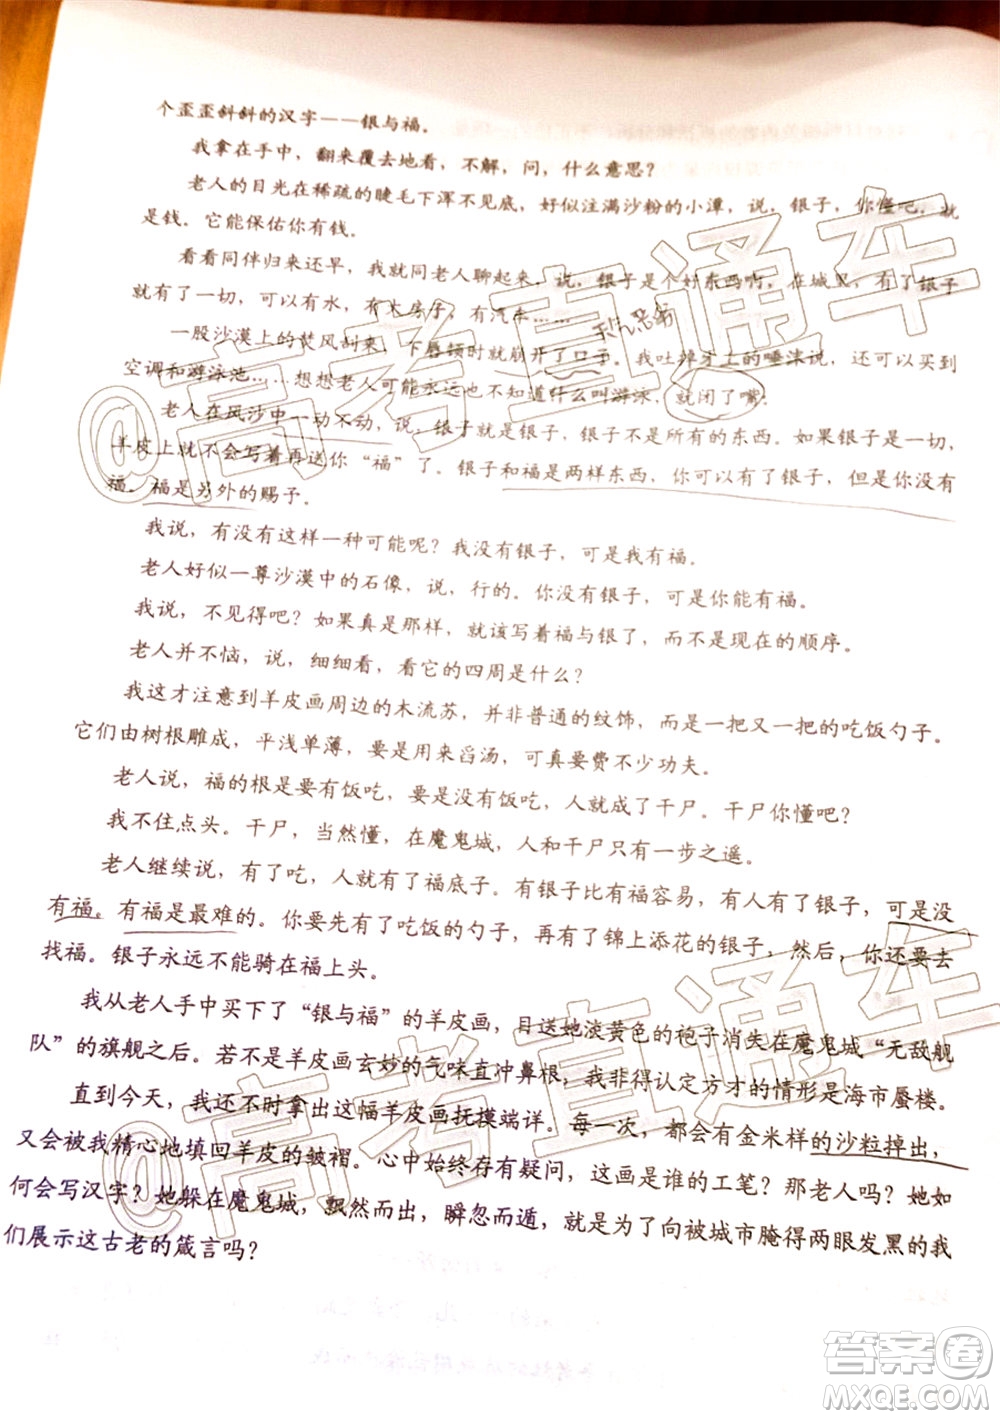 个歪歪斜斜的汉字——银与福。
我拿在手中，翻来覆去地看，不解，问，什么意思？
老人的目光在稀疏的睫毛下浑不见底，好似注满沙粉的小潭，说，银子，你懂吧，就
是钱。它能保佑你有钱。
看看同伴归来还早，我就同老人聊起来，说，银子是个好东西啊，在城里，有了银子
就有了一切，可以有水，有大房子，有汽车……
一股沙漠上的焚风刮来，下唇顿时就崩开了口子。我吐掉牙上的唾沫说，还可以买到
空调和游泳池……想想老人可能永远也不知道什么叫游泳，就闭了嘴。
老人在风沙中一动不动，说，银子就是银子，银子不是所有的东西。如果银子是一切，
羊皮上就不会写着再送你“福”了。银子和福是两样东西，你可以有了银子，但是你没有
福。福是另外的赐予。
我说，有没有这样一种可能呢？我没有银子，可是我有福。
老人好似一尊沙漠中的石像，说，行的。你没有银子，可是你能有福。
我说，不见得吧？如果真是那样，就该写着福与银了，而不是现在的顺序。
老人并不恼，说，细细看，看它的四周是什么？
我这才注意到羊皮画周边的木流苏，并非普通的纹饰，而是一把又一把的吃饭勺子。
它们由树根雕成，平浅单薄，要是用来舀汤，可真要费不少功夫。
老人说，福的根是要有饭吃，要是没有饭吃，人就成了干尸。干尸你懂吧？
我不住点头。干尸，当然懂，在魔鬼城，人和干尸只有一步之遥。
老人继续说，有了吃，就有了福底子。有银子比有福容易，有人有了银子，可是没
有福。有福是最难的。你要先有了吃饭的勺子，再有了锦上添花的银子，然后，你还要去
找福。银子永远不能骑在福上头。
我从老人手中买下了“银与福”的羊皮画，目送她淡黄色的袍子消失在魔鬼城“无敌舰
队”的旗舰之后。若不是羊皮画玄妙的气味直冲鼻根，我非得认定方才的情形是海市蜃楼。
直到今天，我还不时拿出这幅羊皮画抚摸端详。每一次，都会有金米样的沙粒掉出，
又会被我精心地填回羊皮的皱褶。心中始终存有疑问，这画是谁的工笔？那老人吗？她如
何会写汉字？她躲在魔鬼城，飘然而出，瞬忽而遁，就是为了向被城市腌得两眼发黑的我
们展示这古老的箴言吗？
@高考直通车
@高考直通车
答案圈
MXQE.COM